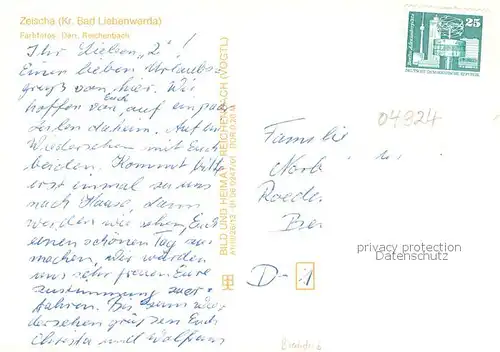 Zeischa (Kr. Bad Liebenwerda)
Farbfotos: Darr, Reichenbach
Ihr Lieben „2"!
Einen lieben Urlaubs-
gruß von hier. Wir
hoffen von Euch, auf ein paar
Zeilen daheim. Auf ein
Wiedersehen mit Euch
beiden. Kommt bitte
erst einmal zu uns
nach Hause, dann
werden wir sehen, Euch
einen schönen Tag zu
machen, wir würden
uns sehr freuen Eure
Zustimmung zu er-
fahren. Bis zum Wie-
dersehen grüßen Euch
Christa und Wolfgang
BILD UND HEIMAT REICHENBACH (VOGTL)
25
DEUTSCHE DEMOKRATISCHE REPUBLIK
04924
Familie
D-1
privacy protection
watermark